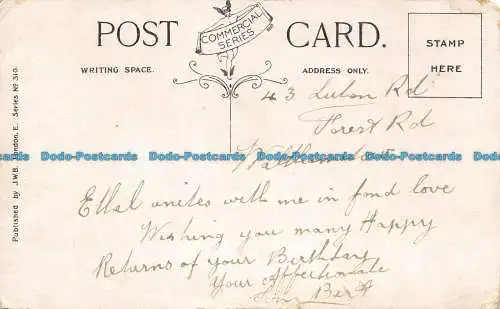 POST CARD.
COMMERCIAL SERIES
WRITING SPACE.
ADDRESS ONLY.
STAMP HERE
Published by J.W.B. London, E. Series No 310.
43 Luton Rd
Forest Rd
Walthamstow
Dodo-Postcards Dodo-Postcards Dodo-Postcards Dodo-Postcards
Ethel unites with me in fond love
Wishing you many Happy
Returns of your Birthday
Your affectionate
Son Bert